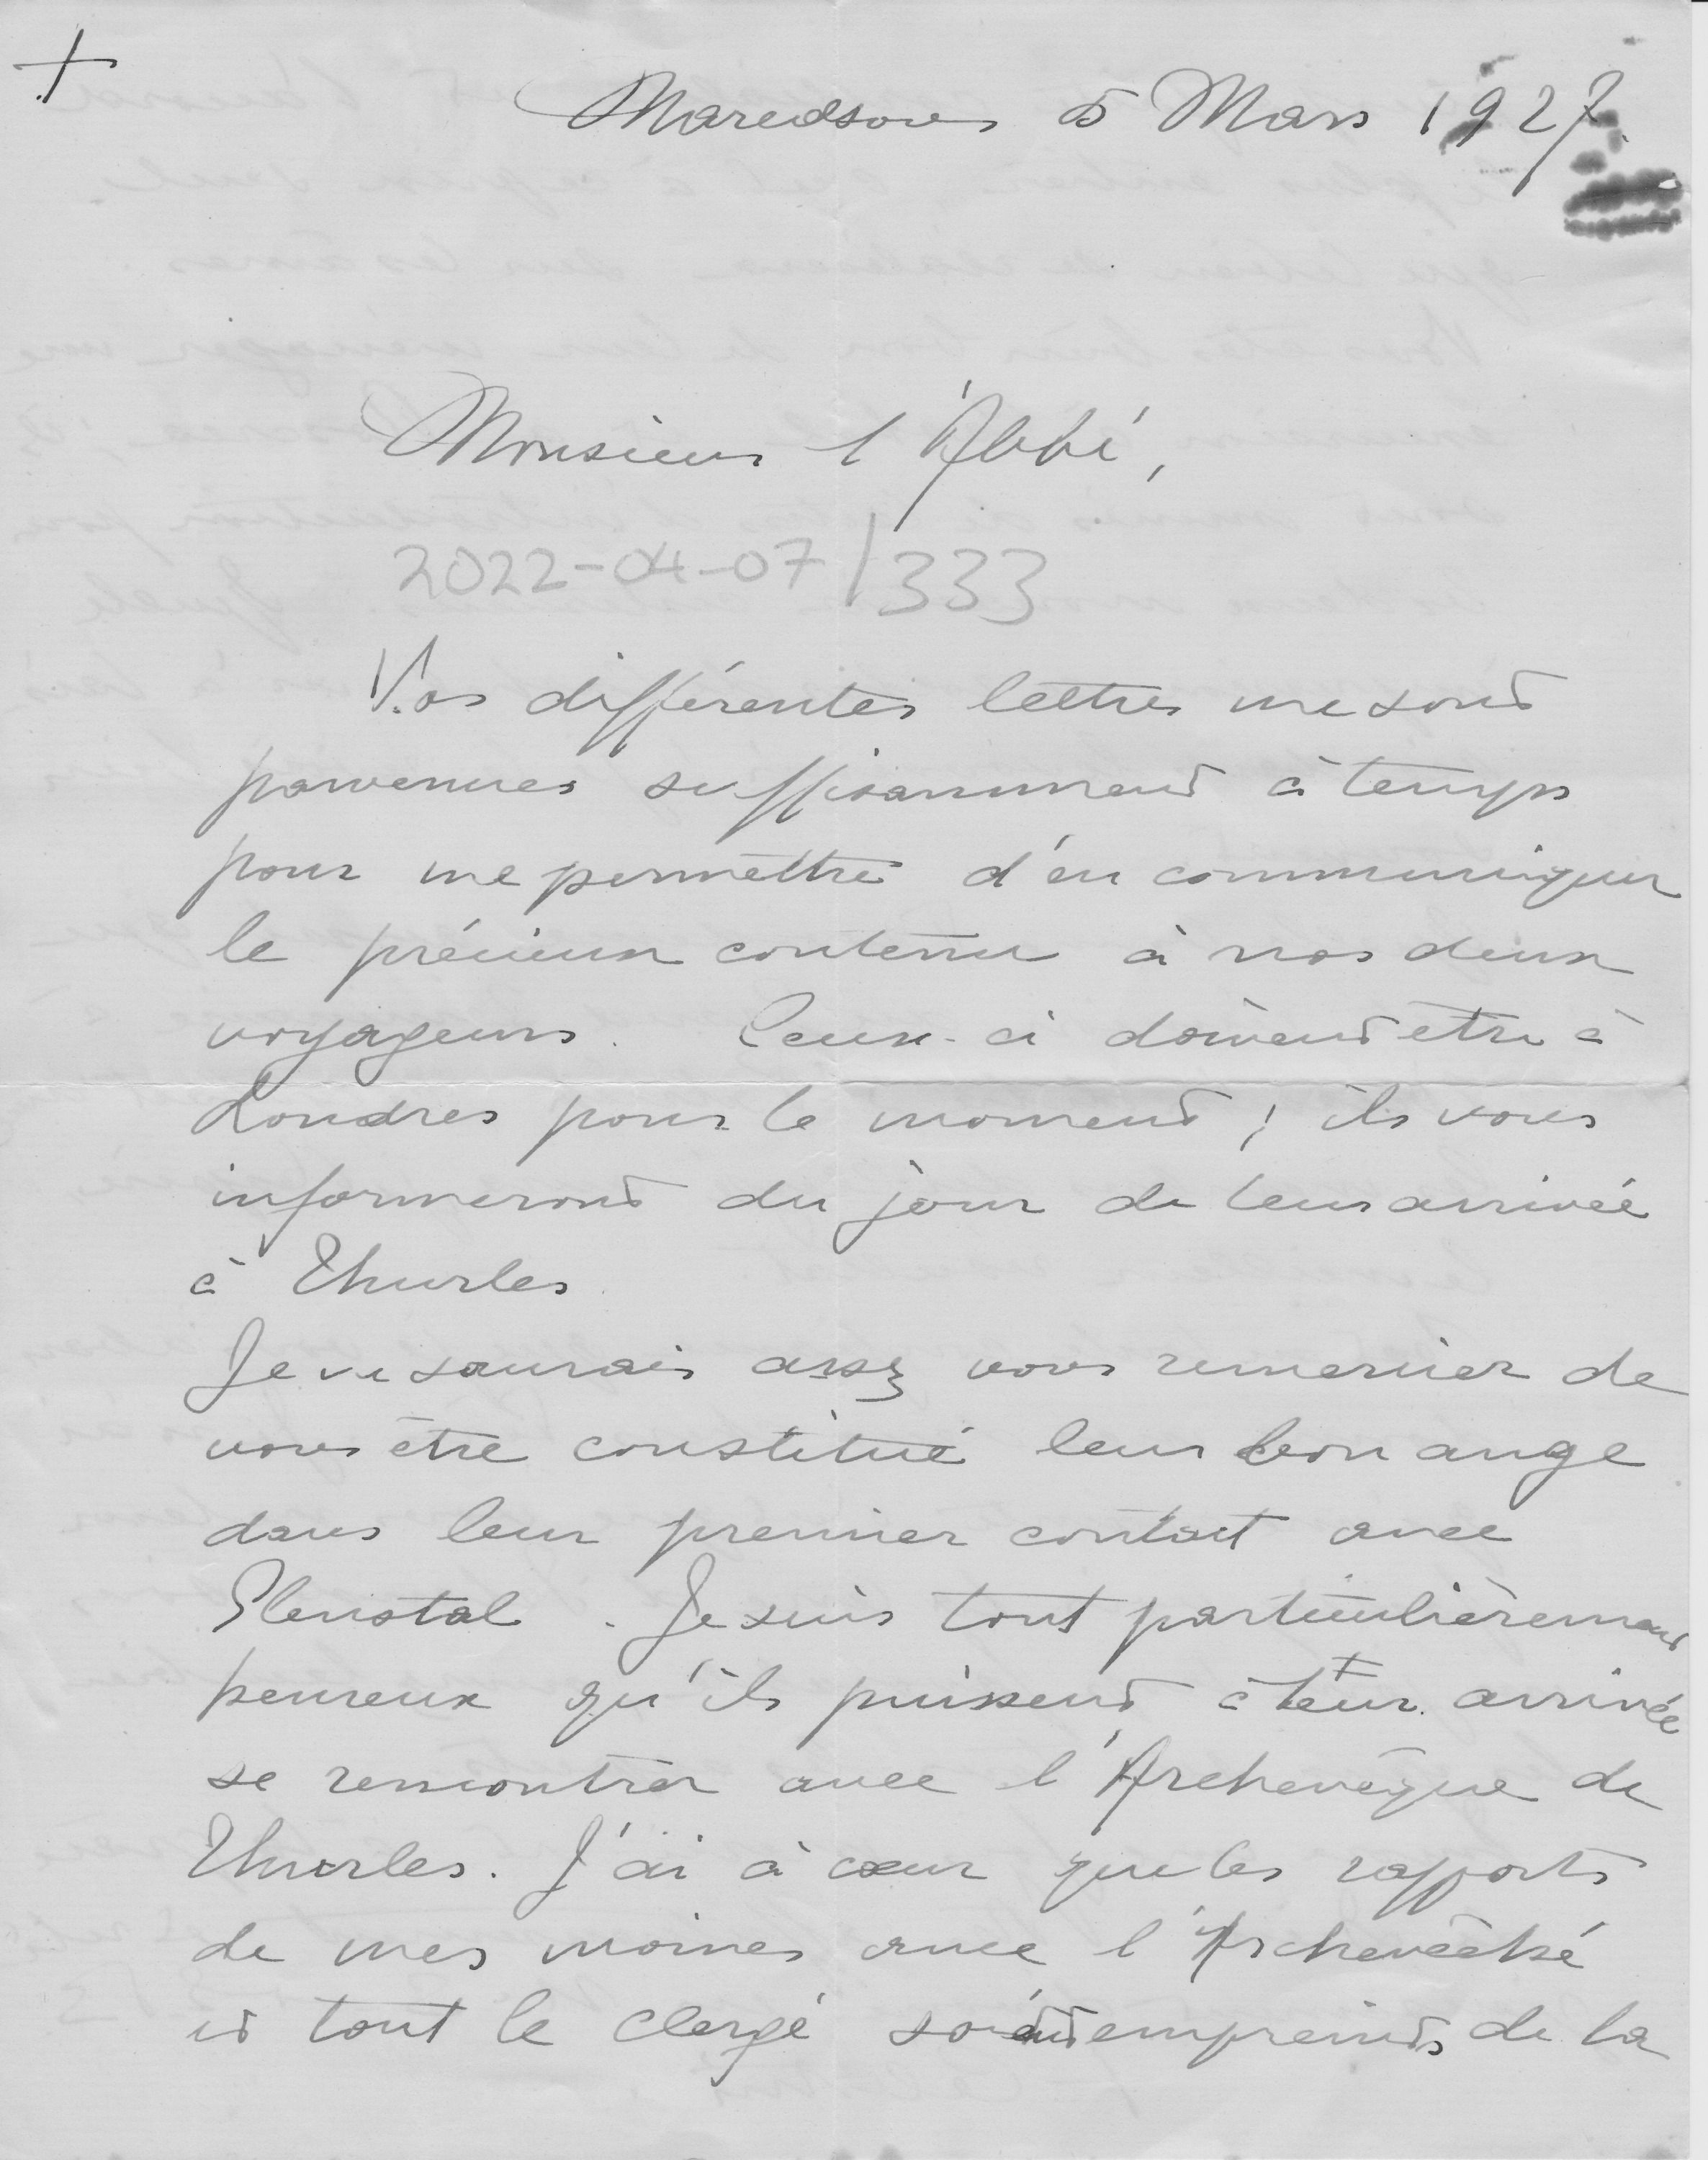 +
Maredsous 5 Mars 1927.
Monsieur l'Abbé,
2022-04-07/333
Vos différentes lettres me sont
parvenues suffisamment à temps
pour me permettre d'en communiquer
le précieux contenu à nos deux
voyageurs. Ceux-ci doivent être à
Londres pour le moment ; ils vous
informeront du jour de leur arrivée
à Thurles
Je ne saurais assez vous remercier de
vous être constitué leur bon ange
dans leur premier contact avec
Glenstal. Je suis tout particulièrement
heureux qu'ils puissent à leur arrivée
se rencontrer avec l'Archevêque de
Thurles. J'ai à cœur que les rapports
de mes moines avec l'Archevêché
et tout le clergé soient empreints de la